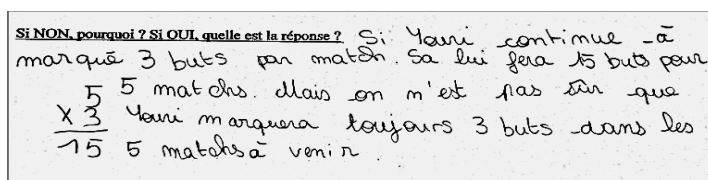 Si NON, pourquoi ? Si OUI, quelle est la réponse ? Si Youri continue à
marqué 3 buts par match. Sa lui fera 15 buts pour
5 5 matchs. Mais on m'est pas sûr que
x 3 Youri marquera toujours 3 buts dans les
15 5 matchs à venir.